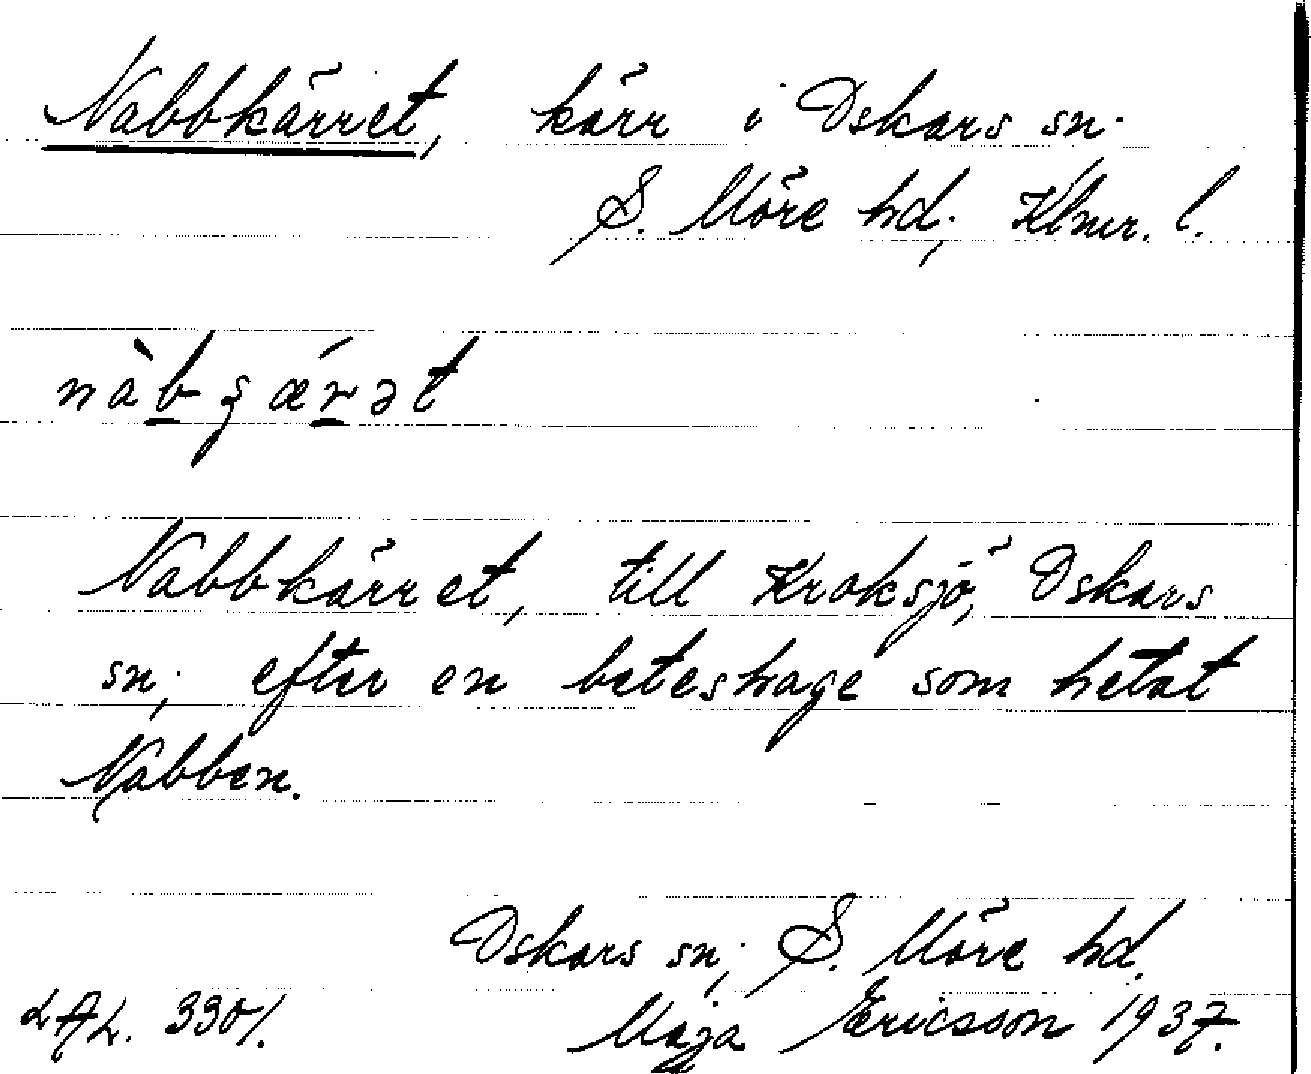 Nabbkärret, kärr i Oskars sn.
S. Möre hd; Klmr. l.
nàbʂǽrət
Nabbkärret, till Kroksjö, Oskars
sn; efter en beteshage som hetat
Nabben.
Oskars sn; S. Möre hd.
LAL. 3301.
Maja Ericsson 1937.